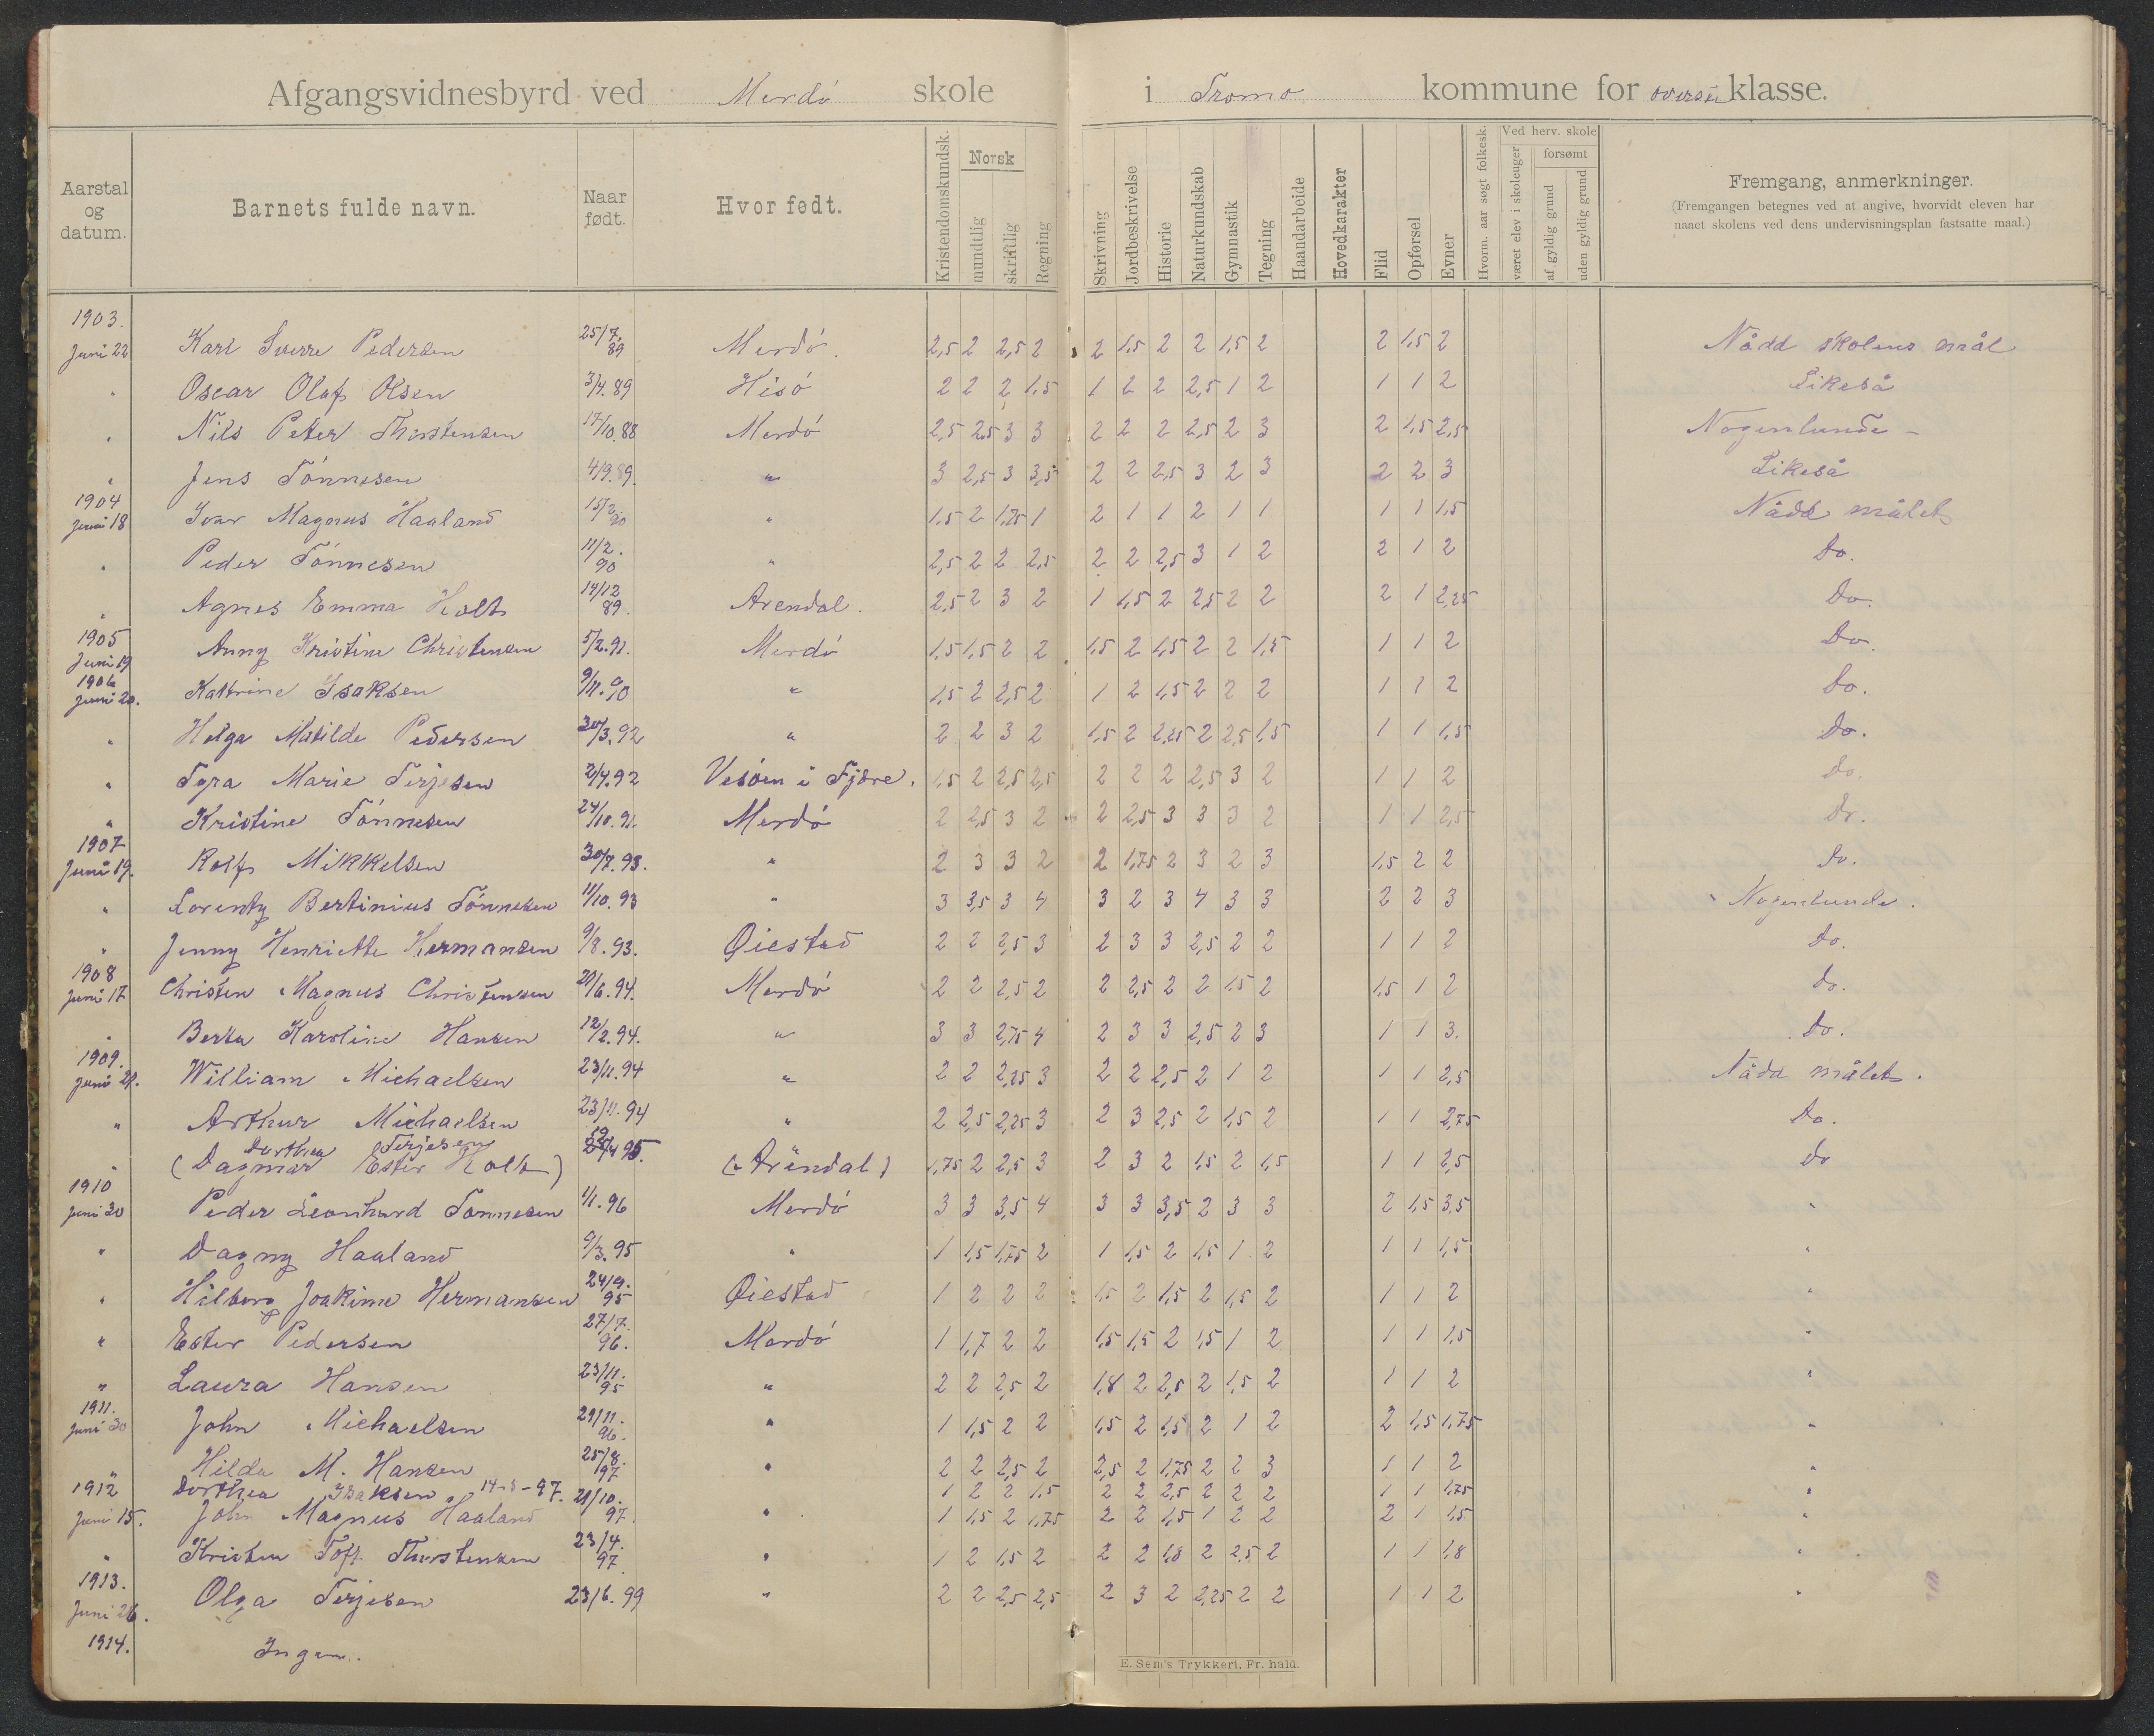 Afgangsvidnesbyrd ved Merdö skole i Tromö kommune for øverste klasse.
Aarstal og datum. Barnets fulde navn. Naar født. Hvor født. Kristendomskundsk. Norsk mundtlig skriftlig Regning Skrivning Jordbeskrivelse Historie Naturkundskab Gymnastik Tegning Haandarbeide Hovedkarakter Flid Opførsel Evner Hvorm. aar søgt folkesk. Ved herv. skole været elev i skoleuger forsømt af gyldig grund uden gyldig grund Fremgang, anmerkninger.
(Fremgangen betegnes ved at angive, hvorvidt eleven har
naaet skolens ved dens undervisningsplan fastsatte maal.)
1903.
Juni 22 Karl Sverre Pedersen 25/7. 89 Merdö. 2,5 2 2,5 2 2 1,5 2 2 1,5 2 2 1,5 2 Nådd skolens mål
" Oscar Olaf Olsen 3/4. 89 Hisö 2 2 2 1,5 1 2 2 2,5 1 2 1 1 2 Likeså
" Nils Peter Thorstensen 17/10. 88 Merdö 2,5 2,5 3 3 2 2 2 2,5 2 3 2 1,5 2,5 Nogenlunde -
" Jens Tönnesen 4/9. 89. " 3 2,5 3 3,5 2 2 2,5 3 2 3 2 2 3 Likeså
1904
Juni 18 Ivar Magnus Haaland 15/2 90 " 1,5 2 1,75 1 2 1 1 2 1 1 1 1 1,5 Nådd målet
" Peder Tönnesen 11/2. 90 " 2,5 2 2 2,5 2 2 2,5 3 1 2 2 1 2 Do.
" Agnes Emma Holt 14/12 89. Arendal. 2,5 2 3 2 1 1,5 2 2,5 2 2 2 1 2,25 Do.
1905
Juni 19 Anny Kristine Christensen 5/2. 91. Merdö 1,5 1,5 2 2 1,5 2 1,5 2 2 1,5 1 1 2 Do.
1906
Juni 20. Katrine Isaksen 9/11. 90 " 1,5 2 2,5 2 1 2 1,5 2 2 2 1 1 2 Do.
" Helga Matilde Pedersen 30/3. 92 " 2 2 3 2 1,5 2 2,25 2 2,5 1,5 1 1 1,5 Do.
" Tyra Marie Terjesen 2/4. 92 Vesöen i Fjære. 1,5 2 2,5 2,5 2 2 2 2,5 3 2 1 1 2 Do.
" Kristine Tönnesen 24/10. 91. Merdö 2 2,5 3 2 2 2,5 3 3 3 2 1 1 2,5 Do.
1907
Juni 19. Rolf Mikkelsen 30/7. 93. " 2 3 3 2 2 1,75 2 3 2 3 1,5 2 2 Do.
" Lorentz Bertinius Tönnesen 11/10. 93 " 3 3,5 3 4 3 2 3 4 3 3 2 2 3 Nogenlunde.
" Jenny Henriette Hermansen 9/8. 93. Øiestad 2 2 2,5 3 2 3 3 2,5 2 2 1 1 2 Do.
1908
Juni 17 Christen Magnus Christensen 20/6. 94. Merdö 2 2 2,5 2 2 2,5 2 2 1,5 2 1,5 1 2 Do.
" Berta Karoline Hansen 12/2. 94. " 3 3 2,75 4 2 3 3 2,5 2 3 1 1 3. Do.
1909.
Juni 21. William Michaelsen 23/11. 94 " 2 2 2,25 3 2 2 2,5 2 1 2 1 1 2,5 Nådd målet.
" Arthur Michaelsen 23/11. 94 " 2 2,5 2,25 3 2 3 2,5 2 1,5 2 1 1 2,75 Do.
Dorthea Terjesen
" (Dagmar Ester Holt) 95. (Arendal) 1,75 2 2,5 3 2 3 2 1,5 2 1,5 1 1 2,5 Do
1910
Juni 30 Peder Leonhard Tönnesen 1/1. 96 Merdö 3 3 3,5 4 3 3 3,5 2 3 3 2 1,5 3,5 "
" Dagny Haaland 9/3. 95 " 1 1,5 1,75 2 1 1,5 2 1,5 1 2 1 1 1,5 "
" Hilborg Joakime Hermansen 24/9. 95 Øiestad 1 2 2 2 1,5 2 1,5 2 1,5 2 1 1 2 "
" Ester Pedersen 27/7. 96. Merdö 1 1,7 2 2 1,5 1,5 2 1,5 1 2 1 1 1,5 "
" Laura Hansen 23/11. 95 " 2 2 2,5 2 1,8 2 2,5 2 1,5 2 1 1 2 "
1911.
Juni 30 John Michaelsen 29/11. 96. " 1 1,5 2 2 1,5 2 1,5 2 1 2 2 1,5 1,75 "
" Hilda M. Hansen 25/8. 97 " 2 2 2,5 2 2,5 2 1,75 2 2 3 1 1 2 "
1912 Dorthea Isaksen 14-5-97. 1 2 2 1,5 2 2 2,5 2 2 2 1 1 1,75 "
Juni 15. John Magnus Haaland 21/10. 97. " 1 1,5 2 1,75 2 2 1,5 1 2 2 2 1 1,5 "
" Kristen Toft Thorstensen 23/4. 97. " 1 2 1,5 2 2 2 1,8 2 2,5 2 1 1 1,8 "
1913.
Juni 26. Olga Terjesen 23/6. 99 " 2 2 2,5 2,5 2 3 2 2,25 2 2 1 1 2 "
1914. Ingen.
E. Sem's Trykkeri, Fr. hald.